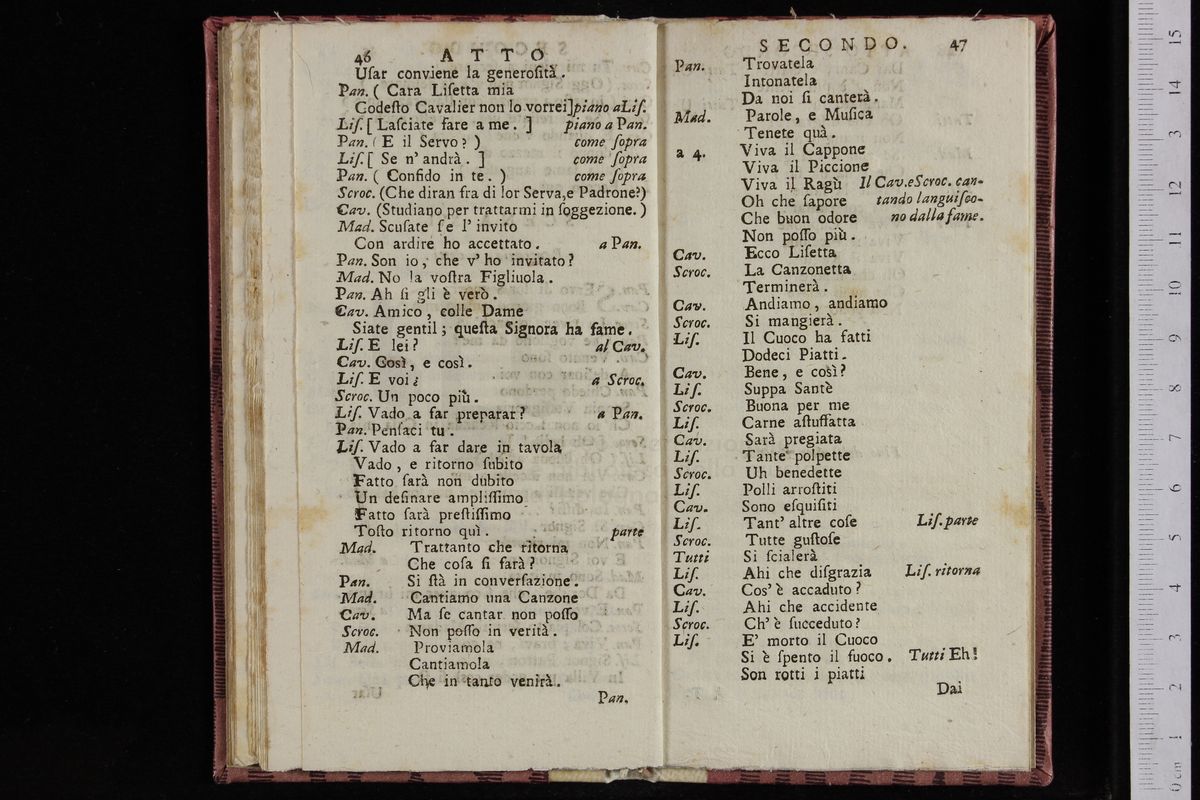 46 ATTO
Uſar conviene la generoſità.
Pan. ( Cara Liſetta mia
Codeſto Cavalier non lo vorrei]piano aLiſ.
Liſ. [ Laſciate fare a me. ] piano a Pan.
Pan. ( E il Servo? ) come ſopra
Liſ. [ Se n' andrà. ] come ſopra
Pan. ( Confido in te. ) come ſopra
Scroc. (Che diran fra di lor Serva,e Padrone?)
Cav. (Studiano per trattarmi in ſoggezione.)
Mad. Scuſate ſe l' invito
Con ardire ho accettato. a Pan.
Pan. Son io, che v' ho invitato?
Mad. No la voſtra Figliuola.
Pan. Ah ſi gli è verò.
Cav. Amico, colle Dame
Siate gentil; queſta Signora ha fame.
Liſ. E lei? al Cav.
Cav. Così, e così.
Liſ. E voi¿ a Scroc.
Scroc. Un poco più.
Liſ. Vado a far preparar? a Pan.
Pan. Penſaci tu.
Liſ. Vado a far dare in tavola
Vado, e ritorno ſubito
Fatto ſarà non dubito
Un deſinare ampliſſimo
Fatto ſarà preſtiſſimo
Toſto ritorno quì. parte
Mad. Trattanto che ritorna
Che coſa ſi farà?
Pan. Si ſtà in converſazione.
Mad. Cantiamo una Canzone
Cav. Ma ſe cantar non poſſo
Scroc. Non poſſo in verità.
Mad. Proviamola
Cantiamola
Che in tanto venirà.
Pan.
SECONDO. 47
Pan. Trovatela
Intonatela
Da noi ſi canterà.
Mad. Parole, e Muſica
Tenete quà.
a 4. Viva il Cappone
Viva il Piccione
Viva il Ragù Il Cav.eScroc. can-
Oh che ſapore tando languiſco-
Che buon odore no dalla fame.
Non poſſo più.
Cav. Ecco Liſetta
Scroc. La Canzonetta
Terminerà.
Cav. Andiamo, andiamo
Scroc. Si mangierà.
Liſ. Il Cuoco ha fatti
Dodeci Piatti.
Cav. Bene, e così?
Liſ. Suppa Santè
Scroc. Buona per me
Liſ. Carne aſtuffatta
Cav. Sarà pregiata
Liſ. Tante polpette
Scroc. Uh benedette
Liſ. Polli arroſtiti
Cav. Sono eſquiſiti
Liſ. Tant' altre coſe Liſ.parte
Scroc. Tutte guſtoſe
Tutti Si ſcialerà
Liſ. Ahi che diſgrazia Liſ. ritorna
Cav. Cos' è accaduto?
Liſ. Ahi che accidente
Scroc. Ch' è ſucceduto?
Liſ. E' morto il Cuoco
Si è ſpento il fuoco. Tutti Eh!
Son rotti i piatti
Dai
0 cm 1 2 3 4 5 6 7 8 9 10 11 12 13 14 15